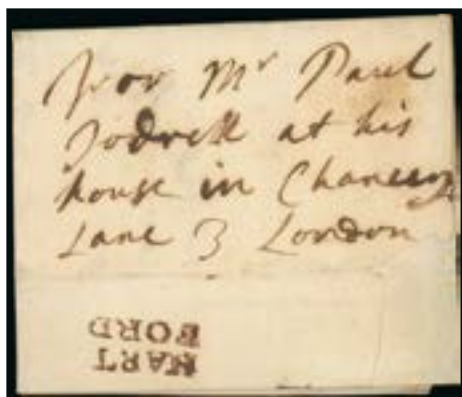 ffor Mr Paul
Jodrell at his
house in Chancery
Lane 3 London
HART
FORD